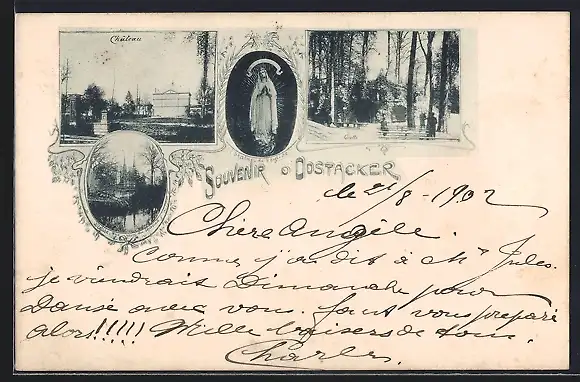 Château
Grotte
SOUVENIR D'OOSTACKER
le 21/8 - 1902
Chère Angèle.
Comme j'ai dit à Mr Jules.
je viendrais Dimanche pour
danse avec vous. faut vous preparé
alors!!!!! Mille baisers de tous.
Charles.